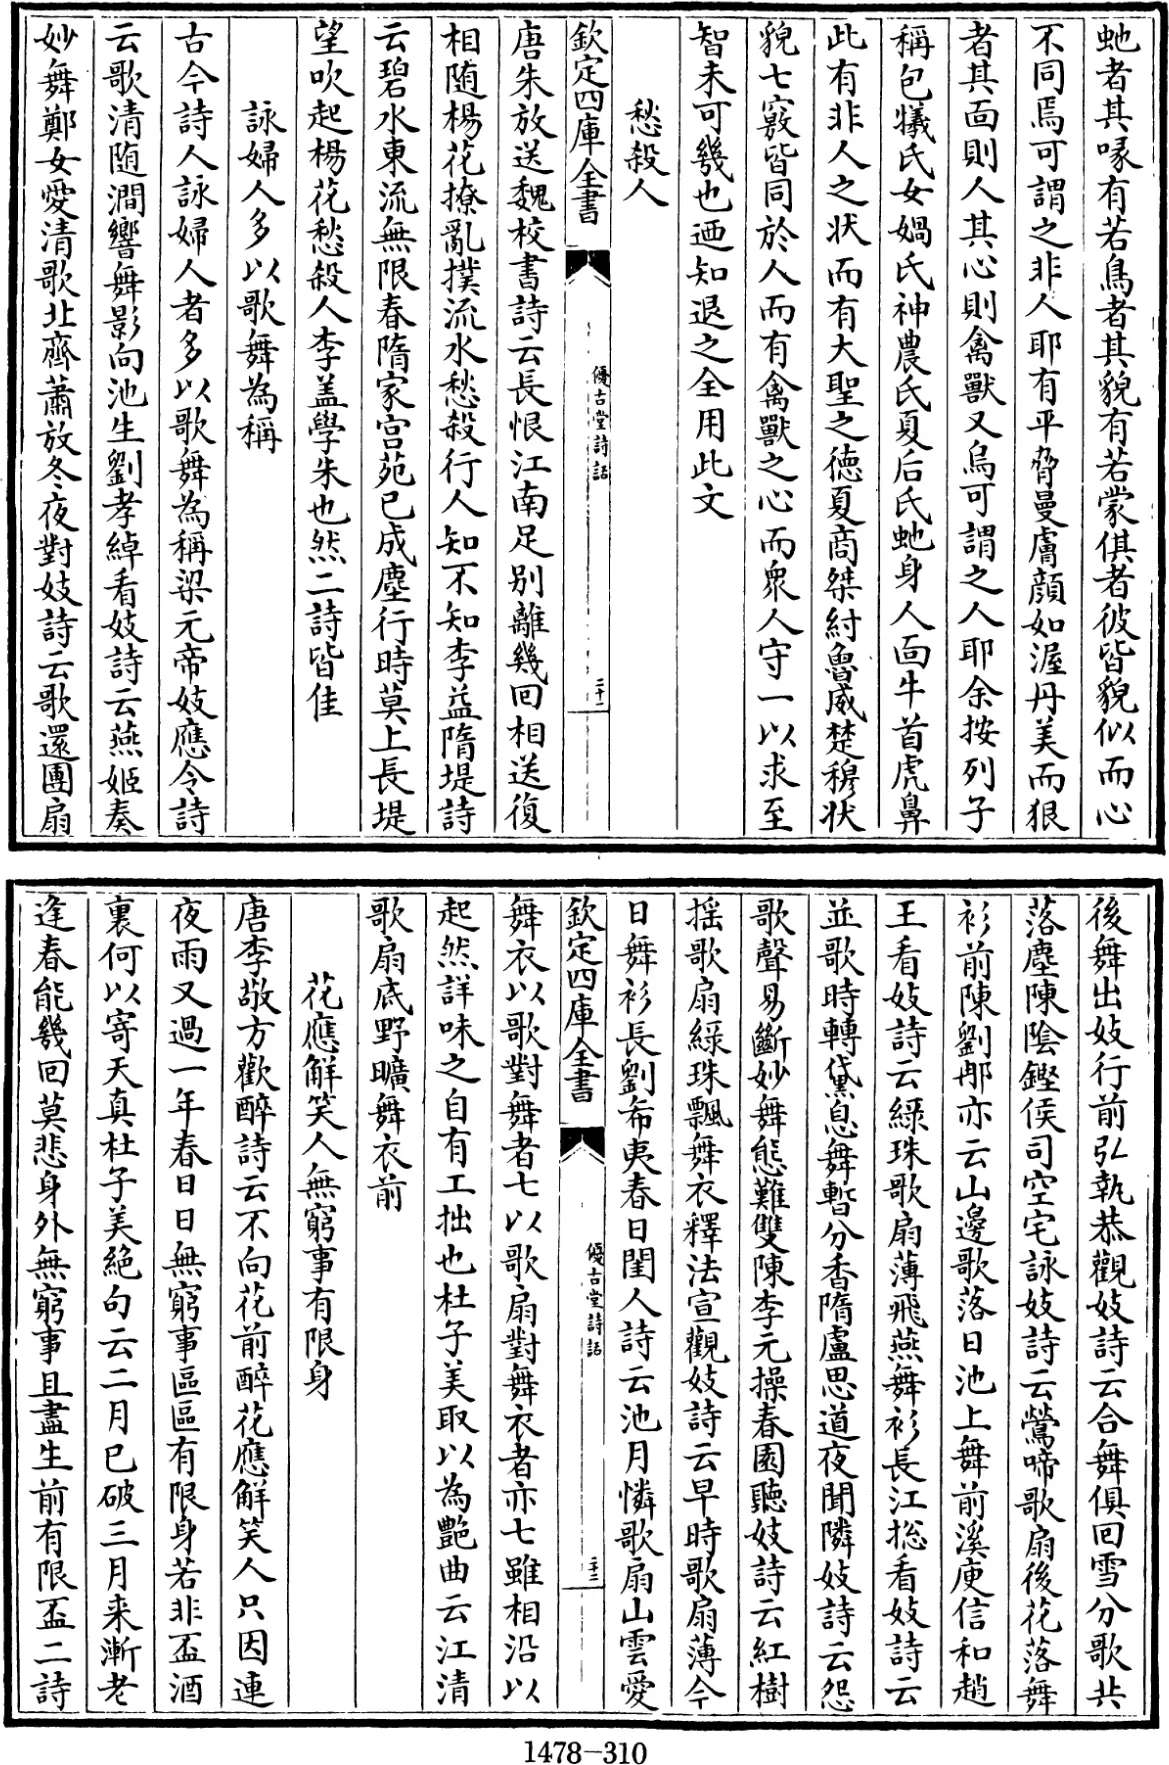 虵者其喙有若鳥者其貌有若蒙倛者彼皆貌似而心
不同焉可謂之非人耶有平脅曼膚顔如渥丹美而狠
者其面則人其心則禽獸又烏可謂之人耶余按列子
稱包犧氏女媧氏神農氏夏后氏虵身人面牛首虎鼻
此有非人之状而有大聖之徳夏商桀紂魯威楚穆状
貌七竅皆同於人而有禽獸之心而衆人守一以求至
智未可幾也迺知退之全用此文
愁殺人
欽定四庫全書
優古堂詩話
二十一
唐朱放送魏校書詩云長恨江南足别離幾回相送復
相随楊花撩亂撲流水愁殺行人知不知李益隋堤詩
云碧水東流無限春隋家宫苑已成塵行時莫上長堤
望吹起楊花愁殺人李盖學朱也然二詩皆佳
詠婦人多以歌舞為稱
古今詩人詠婦人者多以歌舞為稱梁元帝妓應令詩
云歌清随澗響舞影向池生劉孝綽看妓詩云燕姬奏
妙舞鄭女愛清歌北齊蕭放冬夜對妓詩云歌還團扇
後舞出妓行前弘執恭觀妓詩云合舞俱回雪分歌共
落塵陳陰鏗侯司空宅詠妓詩云鶯啼歌扇後花落舞
衫前陳劉刪亦云山邊歌落日池上舞前溪庾信和趙
王看妓詩云綠珠歌扇薄飛燕舞衫長江揔看妓詩云
並歌時轉黛息舞暫分香隋盧思道夜聞隣妓詩云怨
歌聲易斷妙舞態難雙陳李元操春園聽妓詩云紅樹
揺歌扇綠珠飄舞衣釋法宣觀妓詩云早時歌扇薄今
日舞衫長劉希夷春日閨人詩云池月憐歌扇山雲愛
欽定四庫全書
優古堂詩話
二十二
舞衣以歌對舞者七以歌扇對舞衣者亦七雖相沿以
起然詳味之自有工拙也杜子美取以為艷曲云江清
歌扇底野曠舞衣前
花應解笑人無窮事有限身
唐李敬方歡醉詩云不向花前醉花應解笑人只因連
夜雨又過一年春日日無窮事區區有限身若非盃酒
裏何以寄天真杜子美絶句云二月已破三月来漸老
逢春能幾回莫悲身外無窮事且盡生前有限盃二詩
1478-310